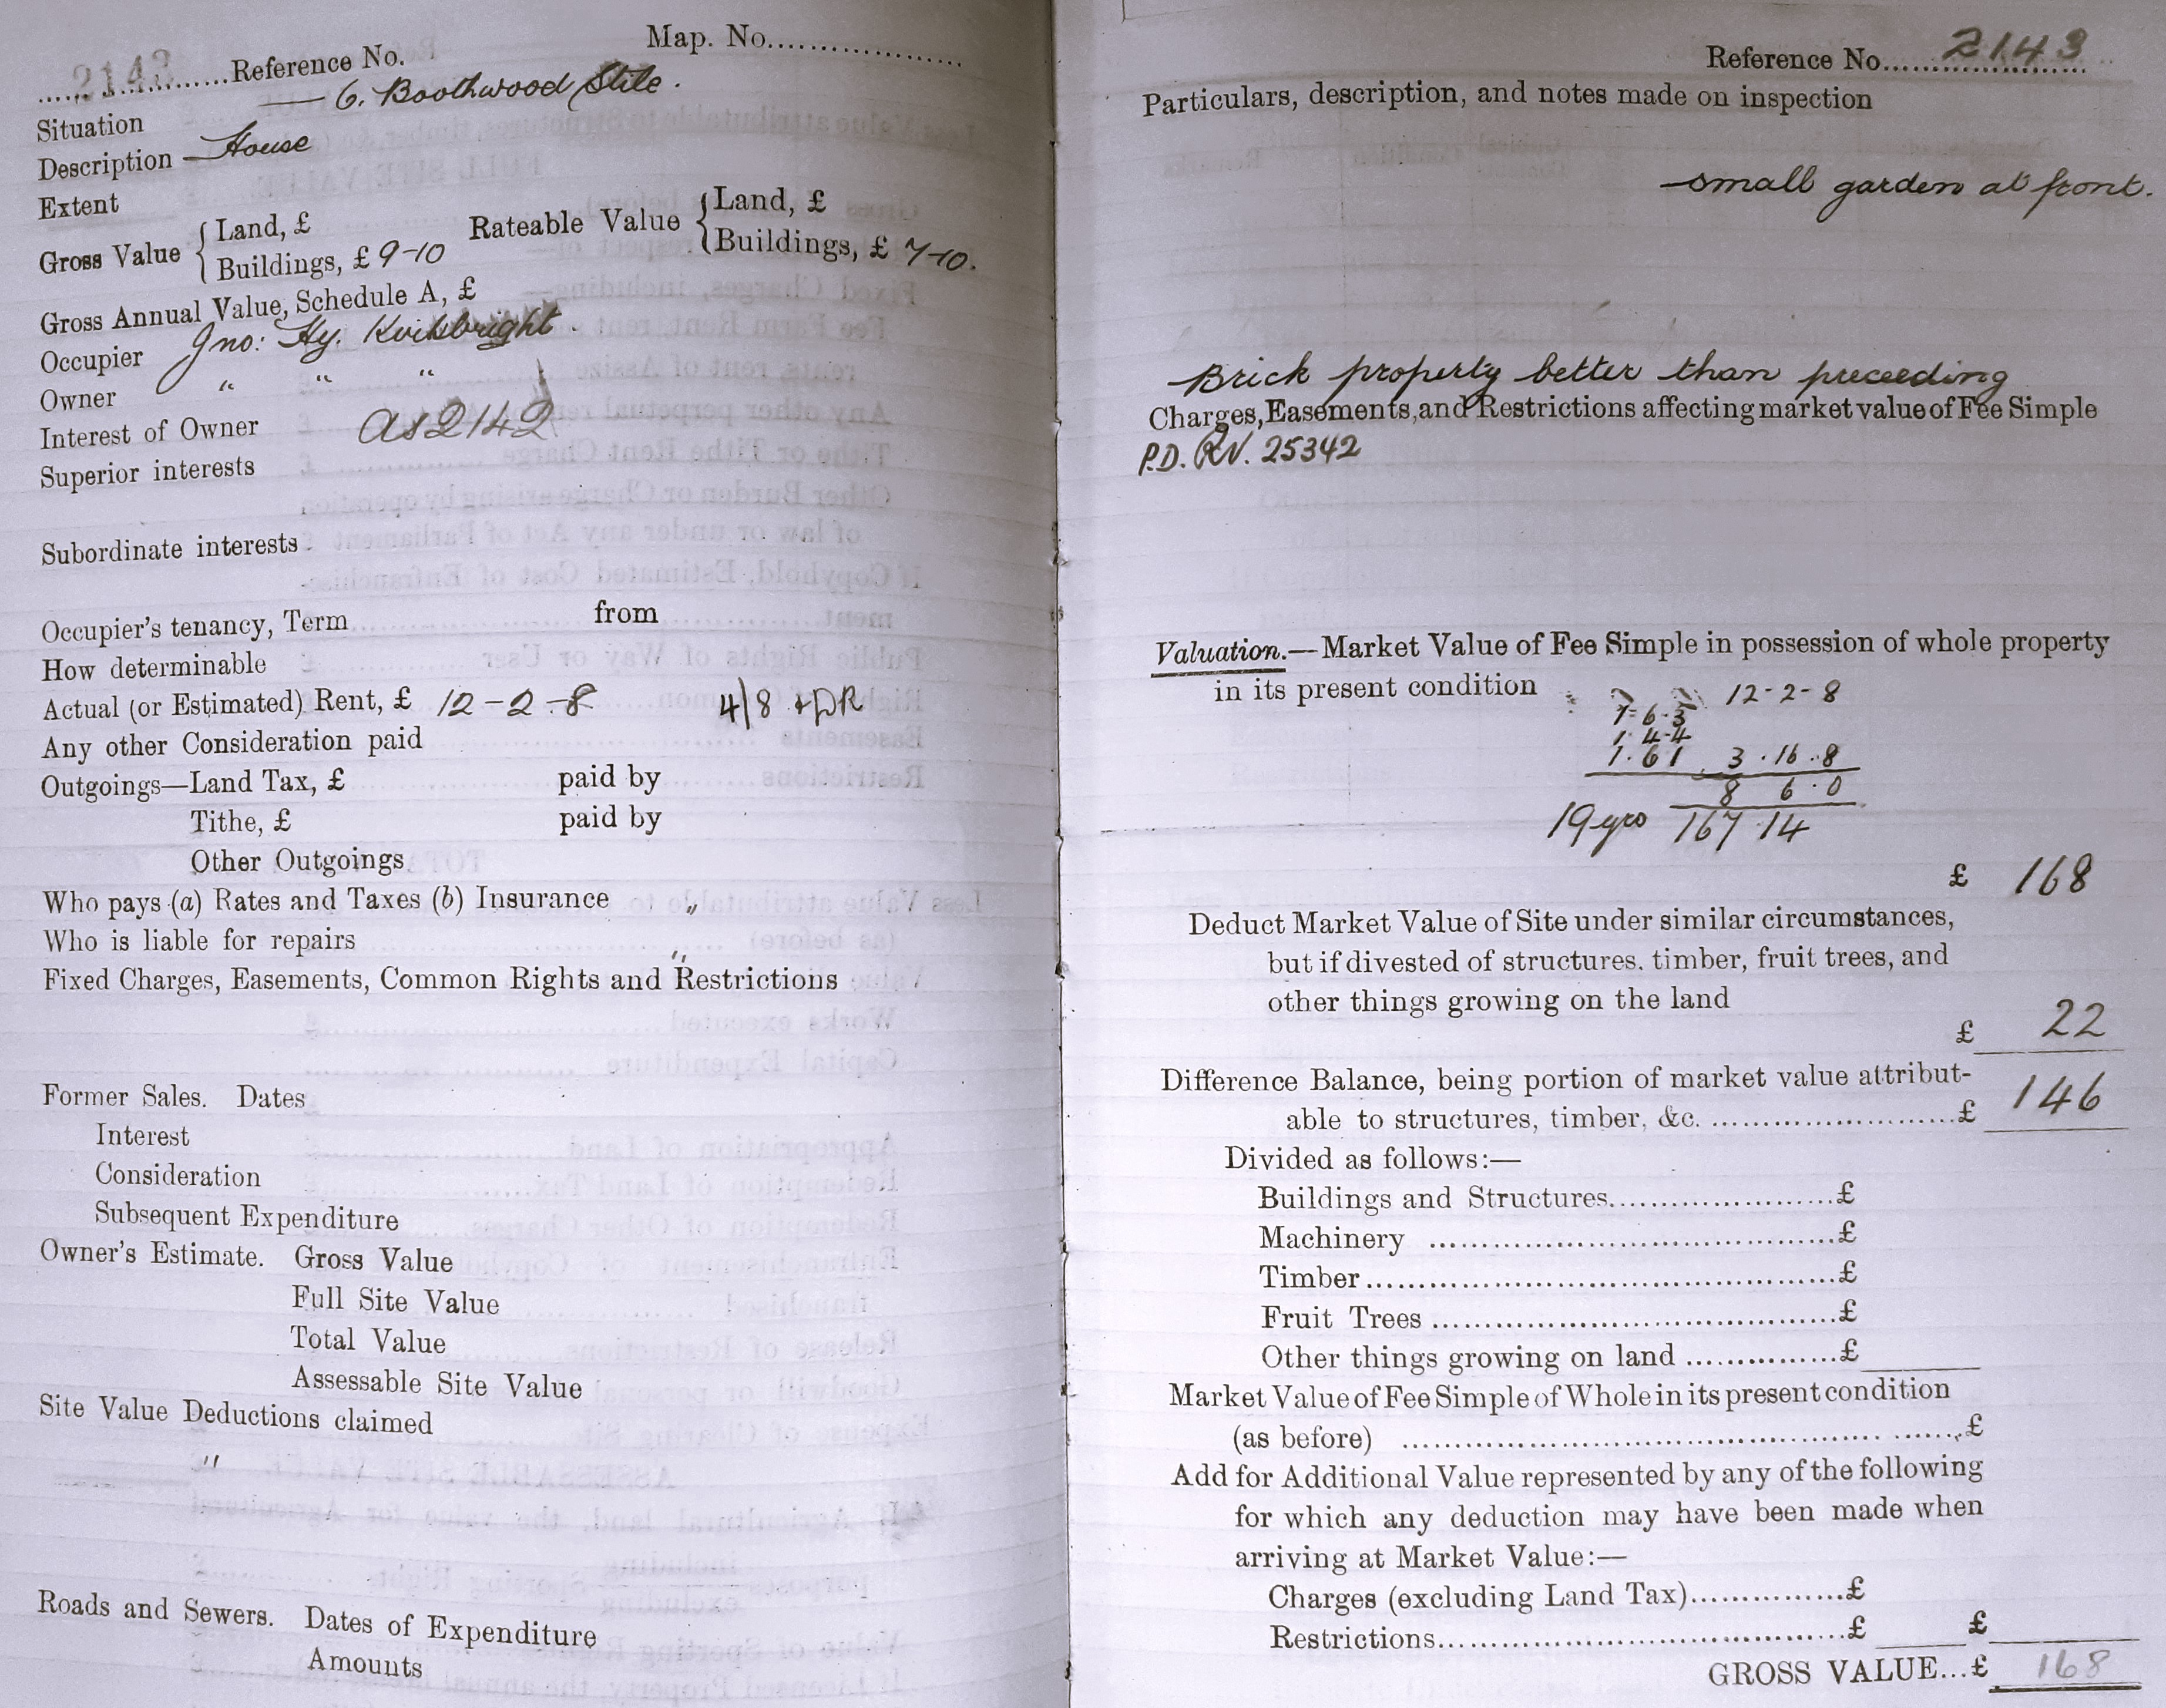 2143 Reference No. Map. No.
Situation — 6. Boothwood Stile.
Description — House
Extent
Gross Value { Land, £ Rateable Value { Land, £
Buildings, £ 9-10 Buildings, £ 7-10.
Gross Annual Value, Schedule A, £
Occupier Jno: Hy.
Owner " " "
Interest of Owner as 2142
Superior interests
Subordinate interests
Occupier's tenancy, Term from
How determinable
Actual (or Estimated) Rent, £ 12-2-8 4/8 + DR
Any other Consideration paid
Outgoings—Land Tax, £ paid by
Tithe, £ paid by
Other Outgoings
Who pays (a) Rates and Taxes (b) Insurance "
Who is liable for repairs "
Fixed Charges, Easements, Common Rights and Restrictions
Former Sales. Dates
Interest
Consideration
Subsequent Expenditure
Owner's Estimate. Gross Value
Full Site Value
Total Value
Assessable Site Value
Site Value Deductions claimed
"
Roads and Sewers. Dates of Expenditure
Amounts
Reference No. 2143
Particulars, description, and notes made on inspection
small garden at front.
Brick property better than preceeding
Charges, Easements, and Restrictions affecting market value of Fee Simple
P.D. RV. 25342
Valuation.—Market Value of Fee Simple in possession of whole property
in its present condition 12-2-8
1-6-3
1 4-4
1.6 1 3.16.8
8 6.0
19 yrs 167.14
£ 168
Deduct Market Value of Site under similar circumstances,
but if divested of structures, timber, fruit trees, and
other things growing on the land
£ 22
Difference Balance, being portion of market value attribut-
able to structures, timber, &c. £ 146
Divided as follows:—
Buildings and Structures £
Machinery £
Timber £
Fruit Trees £
Other things growing on land £
Market Value of Fee Simple of Whole in its present condition
(as before) £
Add for Additional Value represented by any of the following
for which any deduction may have been made when
arriving at Market Value:—
Charges (excluding Land Tax) £
Restrictions £ £
GROSS VALUE... £ 168